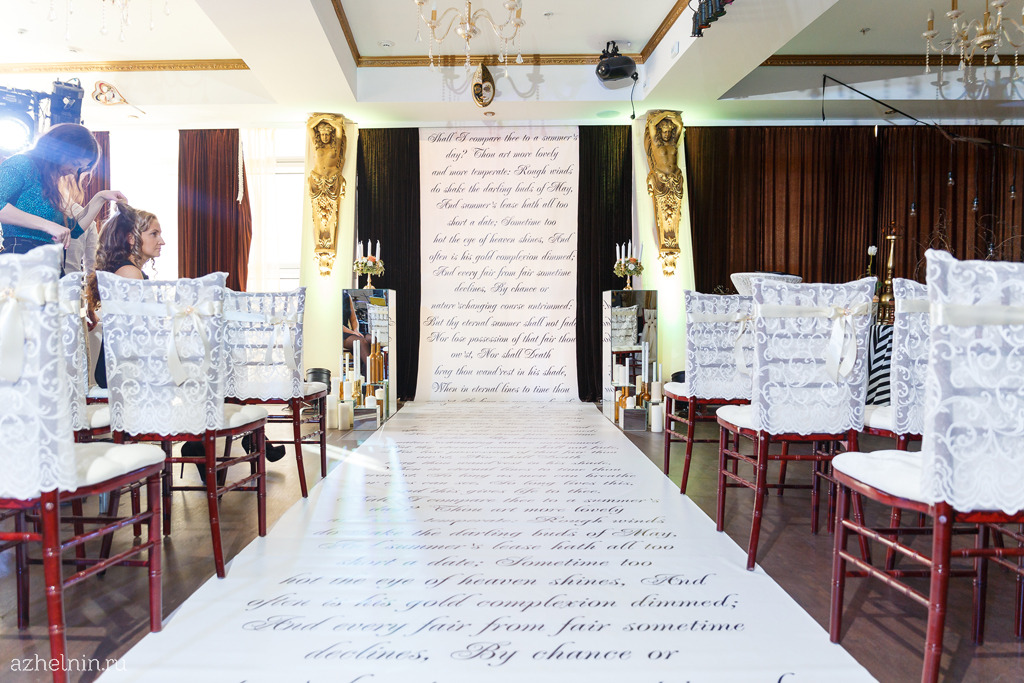 Shall I compare thee to a summer's
day? Thou art more lovely
and more temperate: Rough winds
do shake the darling buds of May,
And summer's lease hath all too
short a date; Sometime too
hot the eye of heaven shines, And
often is his gold complexion dimmed;
And every fair from fair sometime
declines, By chance or
nature'schanging course untrimmed:
But thy eternal summer shall not fade
Nor lose possession of that fair thou
ow'st, Nor shall Death
brag thou wand'rest in his shade,
When in eternal lines to time thou
can see, So long lives this,
and this gives life to thee.
Shall I compare thee to a summer's
day? Thou art more lovely
temperate: Rough winds
do shake the darling buds of May,
And summer's lease hath all too
short a date; Sometime too
hot the eye of heaven shines, And
often is his gold complexion dimmed;
And every fair from fair sometime
declines, By chance or
azhelnin.ru